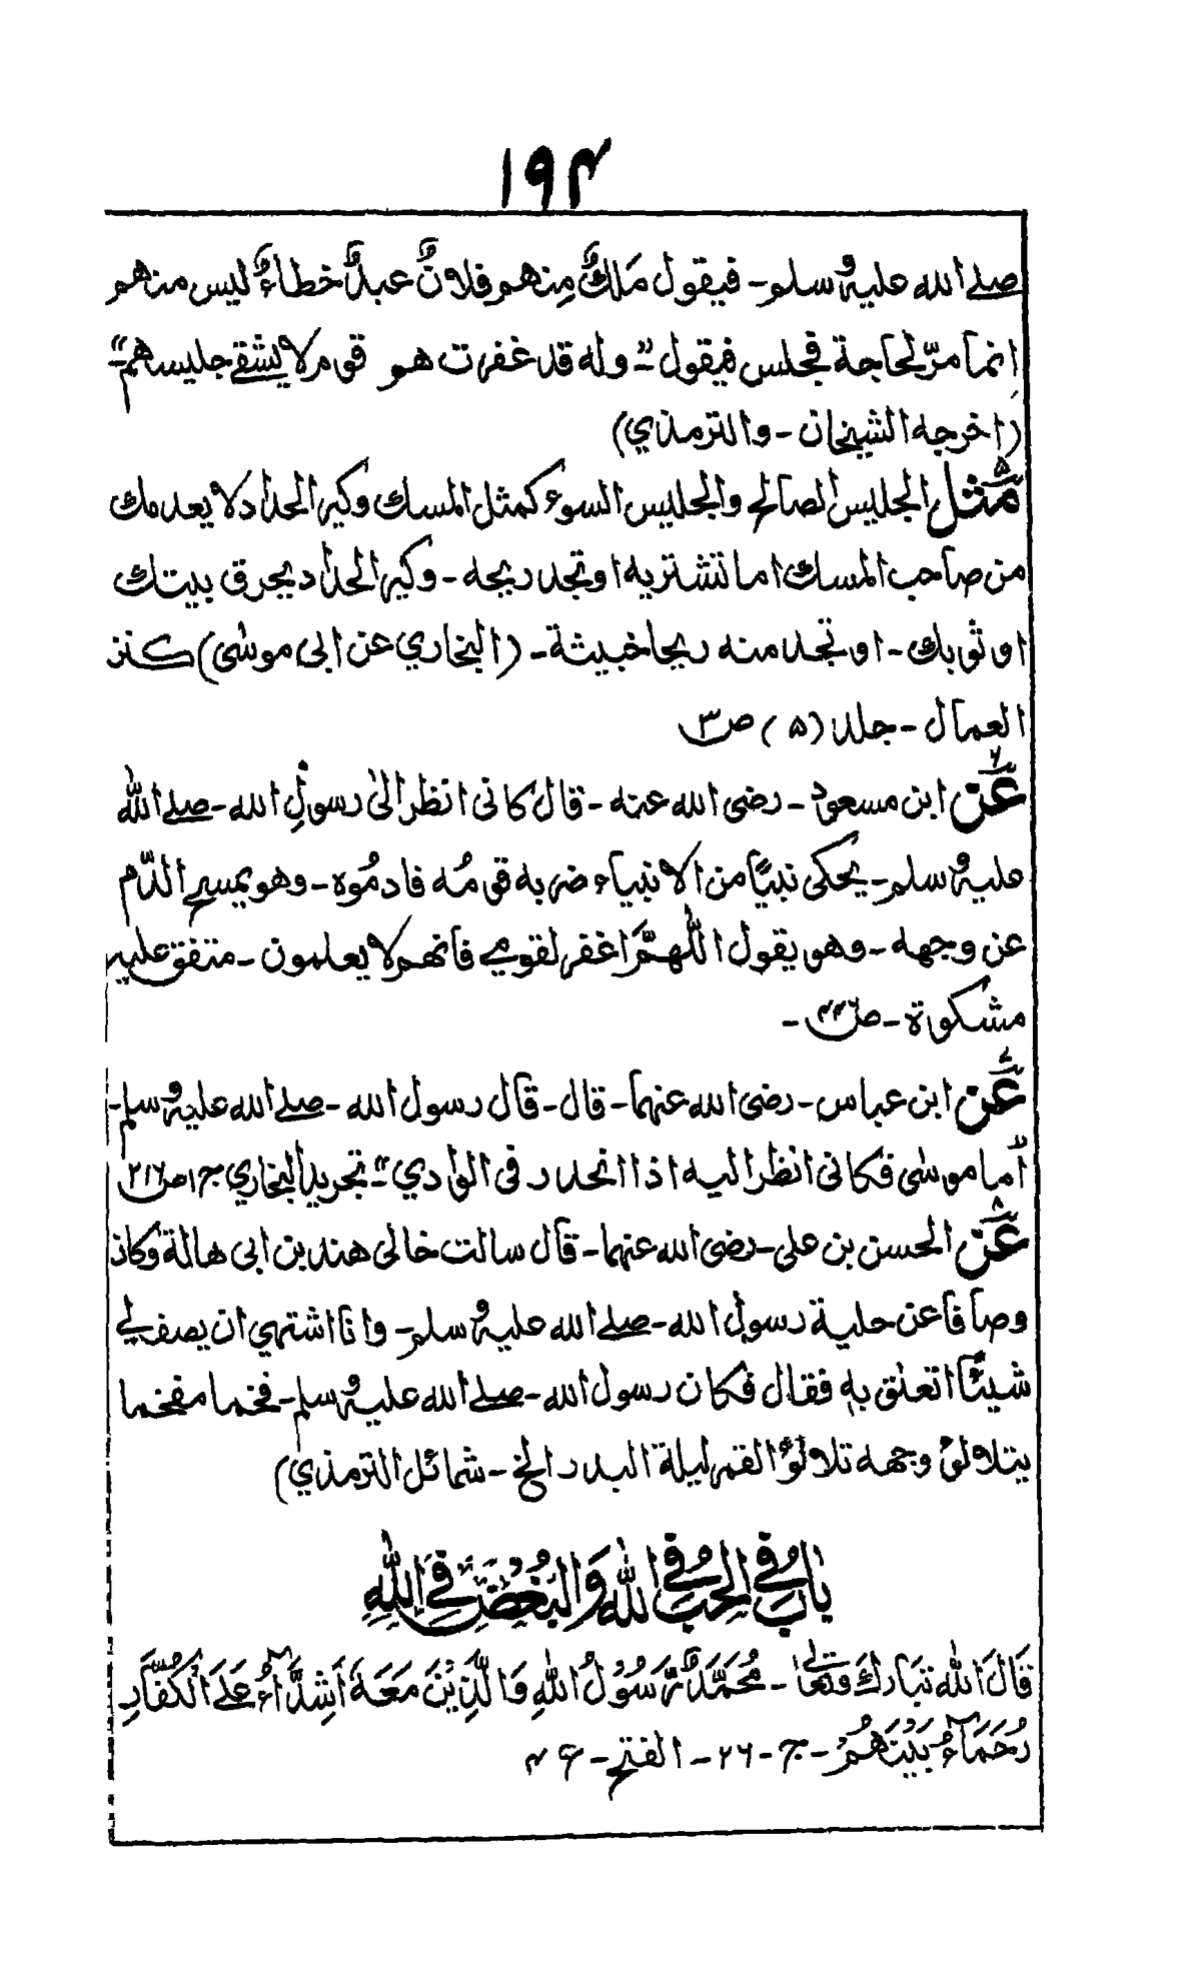 ۱۹۴
صلے الله عليه وسلم۔ فيقول مَلَكٌ مِنهم فلانٌ عبدٌ خطاءٌ ليس منهم
انما مرّ لحاجة فجلس فيقول ”۔ وله قد غفرت هم قوم لا يشقے جليسهم“۔
(اخرجه الشيخان۔ والترمذي)
۵ مَثل الجليس الصالح والجليس السوء كمثل المسك وكير الحداد لا يعدمك
من صاحب المسك اما تشتريه او تجد ريحه۔ وكير الحداد يحرق بيتك
او ثوبك۔ او تجد منه ريحا خبيثة۔ (البخاري عن ابی موسٰی) كنز
العمال۔ جلد (۵) ص۳
۶ عَن ابن مسعود۔ رضی الله عنه۔ قال كانی انظر الیٰ رسولِ الله۔ صلے اللّٰه
عليه وسلم۔ يحكی نبيًا من الانبياء ضربه قومُه فادمُوه۔ وهو يمسح الدّم
عن وجهه۔ وهو يقول اللّٰهمَّ اغفر لقومي فانهم لا يعلمون۔ متفق عليه
مشكوٰة۔ ص۴۴۶۔
۷ عَن ابن عباس۔ رضی الله عنهما۔ قال۔ قال رسول الله۔ صلے الله عليه وسلم۔
اَما موسٰی فكانی انظر اليه اذا انحدر فی الوادي“۔ تجريد البخاري ج۱ ص۲۱۶
۸ عَن الحسن بن علی۔ رضی الله عنهما۔ قال سالت خالی هند بن ابی هالة وكان
وصافا عن حلية رسول الله۔ صلے الله عليه وسلم۔ وانا اشتهي ان يصف لي
شيئًا اتعلق به فقال فكان رسول الله۔ صلے الله عليه وسلم۔ فخما مفخما
يتلالؤ وجهه تلالؤ القمر ليلة البدر الخ۔ شمائل الترمذي)
بَابٌ فِي الحُبِّ فِي اللّٰهِ وَالبُغْضِ فِي اللّٰهِ
قَالَ اللّٰه تَبَارَكَ وَتعَالٰی۔ مُحَمَّدٌ رَّسُوْلُ اللّٰهِ وَالَّذِيْنَ مَعَهٗ اَشِدَّآءُ عَلَی الْكُفَّارِ
رُحَمَآءُ بَيْنَهُمْ۔ ج۔ ۲۶۔ الفتح۔ ع ۴